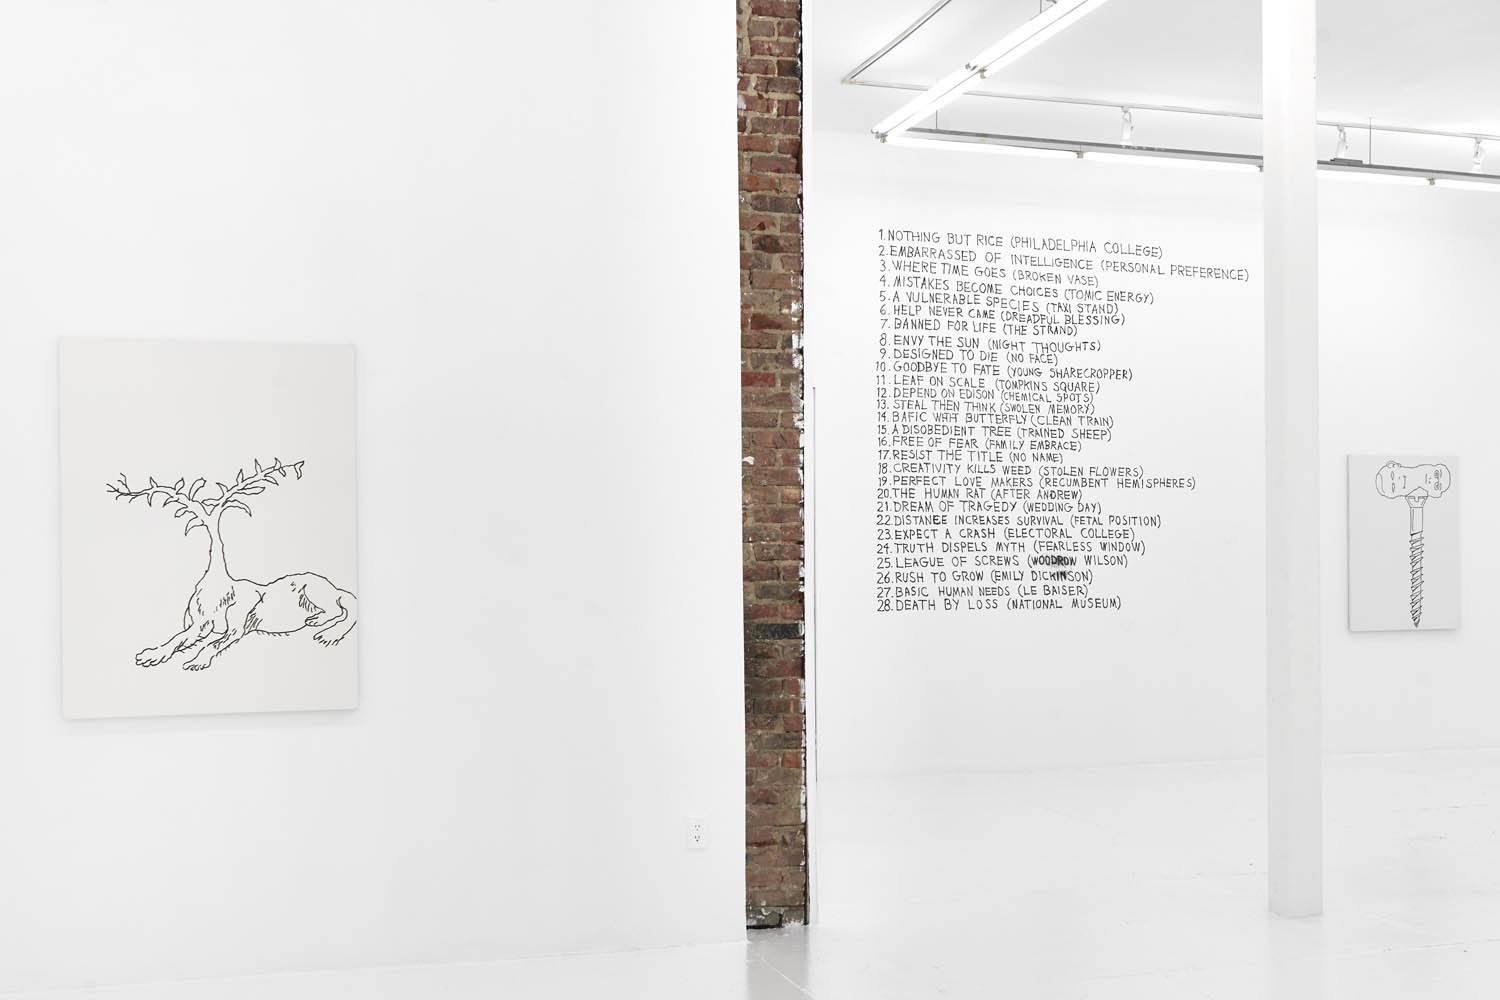 1. NOTHING BUT RICE (PHILADELPHIA COLLEGE)
2. EMBARRASSED OF INTELLIGENCE (PERSONAL PREFERENCE)
3. WHERE TIME GOES (BROKEN VASE)
4. MISTAKES BECOME CHOICES (TOMIC ENERGY)
5. A VULNERABLE SPECIES (TAXI STAND)
6. HELP NEVER CAME (DREADFUL BLESSING)
7. BANNED FOR LIFE (THE STRAND)
8. ENVY THE SUN (NIGHT THOUGHTS)
9. DESIGNED TO DIE (NO FACE)
10. GOODBYE TO FATE (YOUNG SHARECROPPER)
11. LEAF ON SCALE (TOMPKINS SQUARE)
12. DEPEND ON EDISON (CHEMICAL SPOTS)
13. STEAL THEN THINK (SWOLEN MEMORY)
14. BAFIC WITH BUTTERFLY (CLEAN TRAIN)
15. A DISOBEDIENT TREE (TRAINED SHEEP)
16. FREE OF FEAR (FAMILY EMBRACE)
17. RESIST THE TITLE (NO NAME)
18. CREATIVITY KILLS WEED (STOLEN FLOWERS)
19. PERFECT LOVE MAKERS (RECUMBENT HEMISPHERES)
20. THE HUMAN RAT (AFTER ANDREW)
21. DREAM OF TRAGEDY (WEDDING DAY)
22. DISTANCE INCREASES SURVIVAL (FETAL POSITION)
23. EXPECT A CRASH (ELECTORAL COLLEGE)
24. TRUTH DISPELS MYTH (FEARLESS WINDOW)
25. LEAGUE OF SCREWS (WOODROW WILSON)
26. RUSH TO GROW (EMILY DICKINSON)
27. BASIC HUMAN NEEDS (LE BAISER)
28. DEATH BY LOSS (NATIONAL MUSEUM)